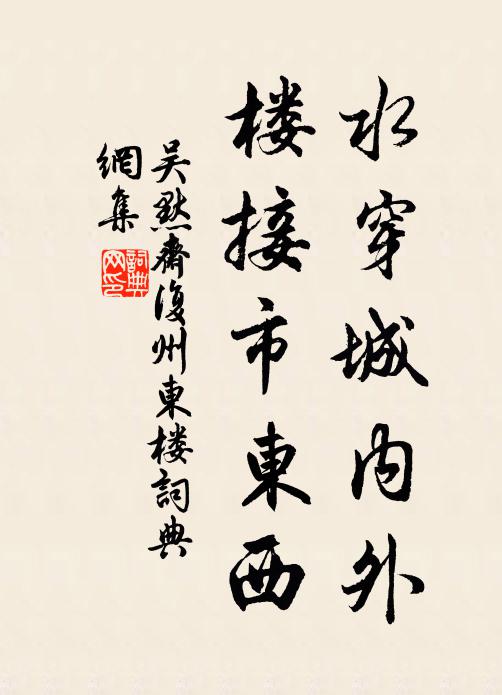 水穿城内外
楼接市東西
吴黙齋復州東楼詞典
網集
詞典
网印